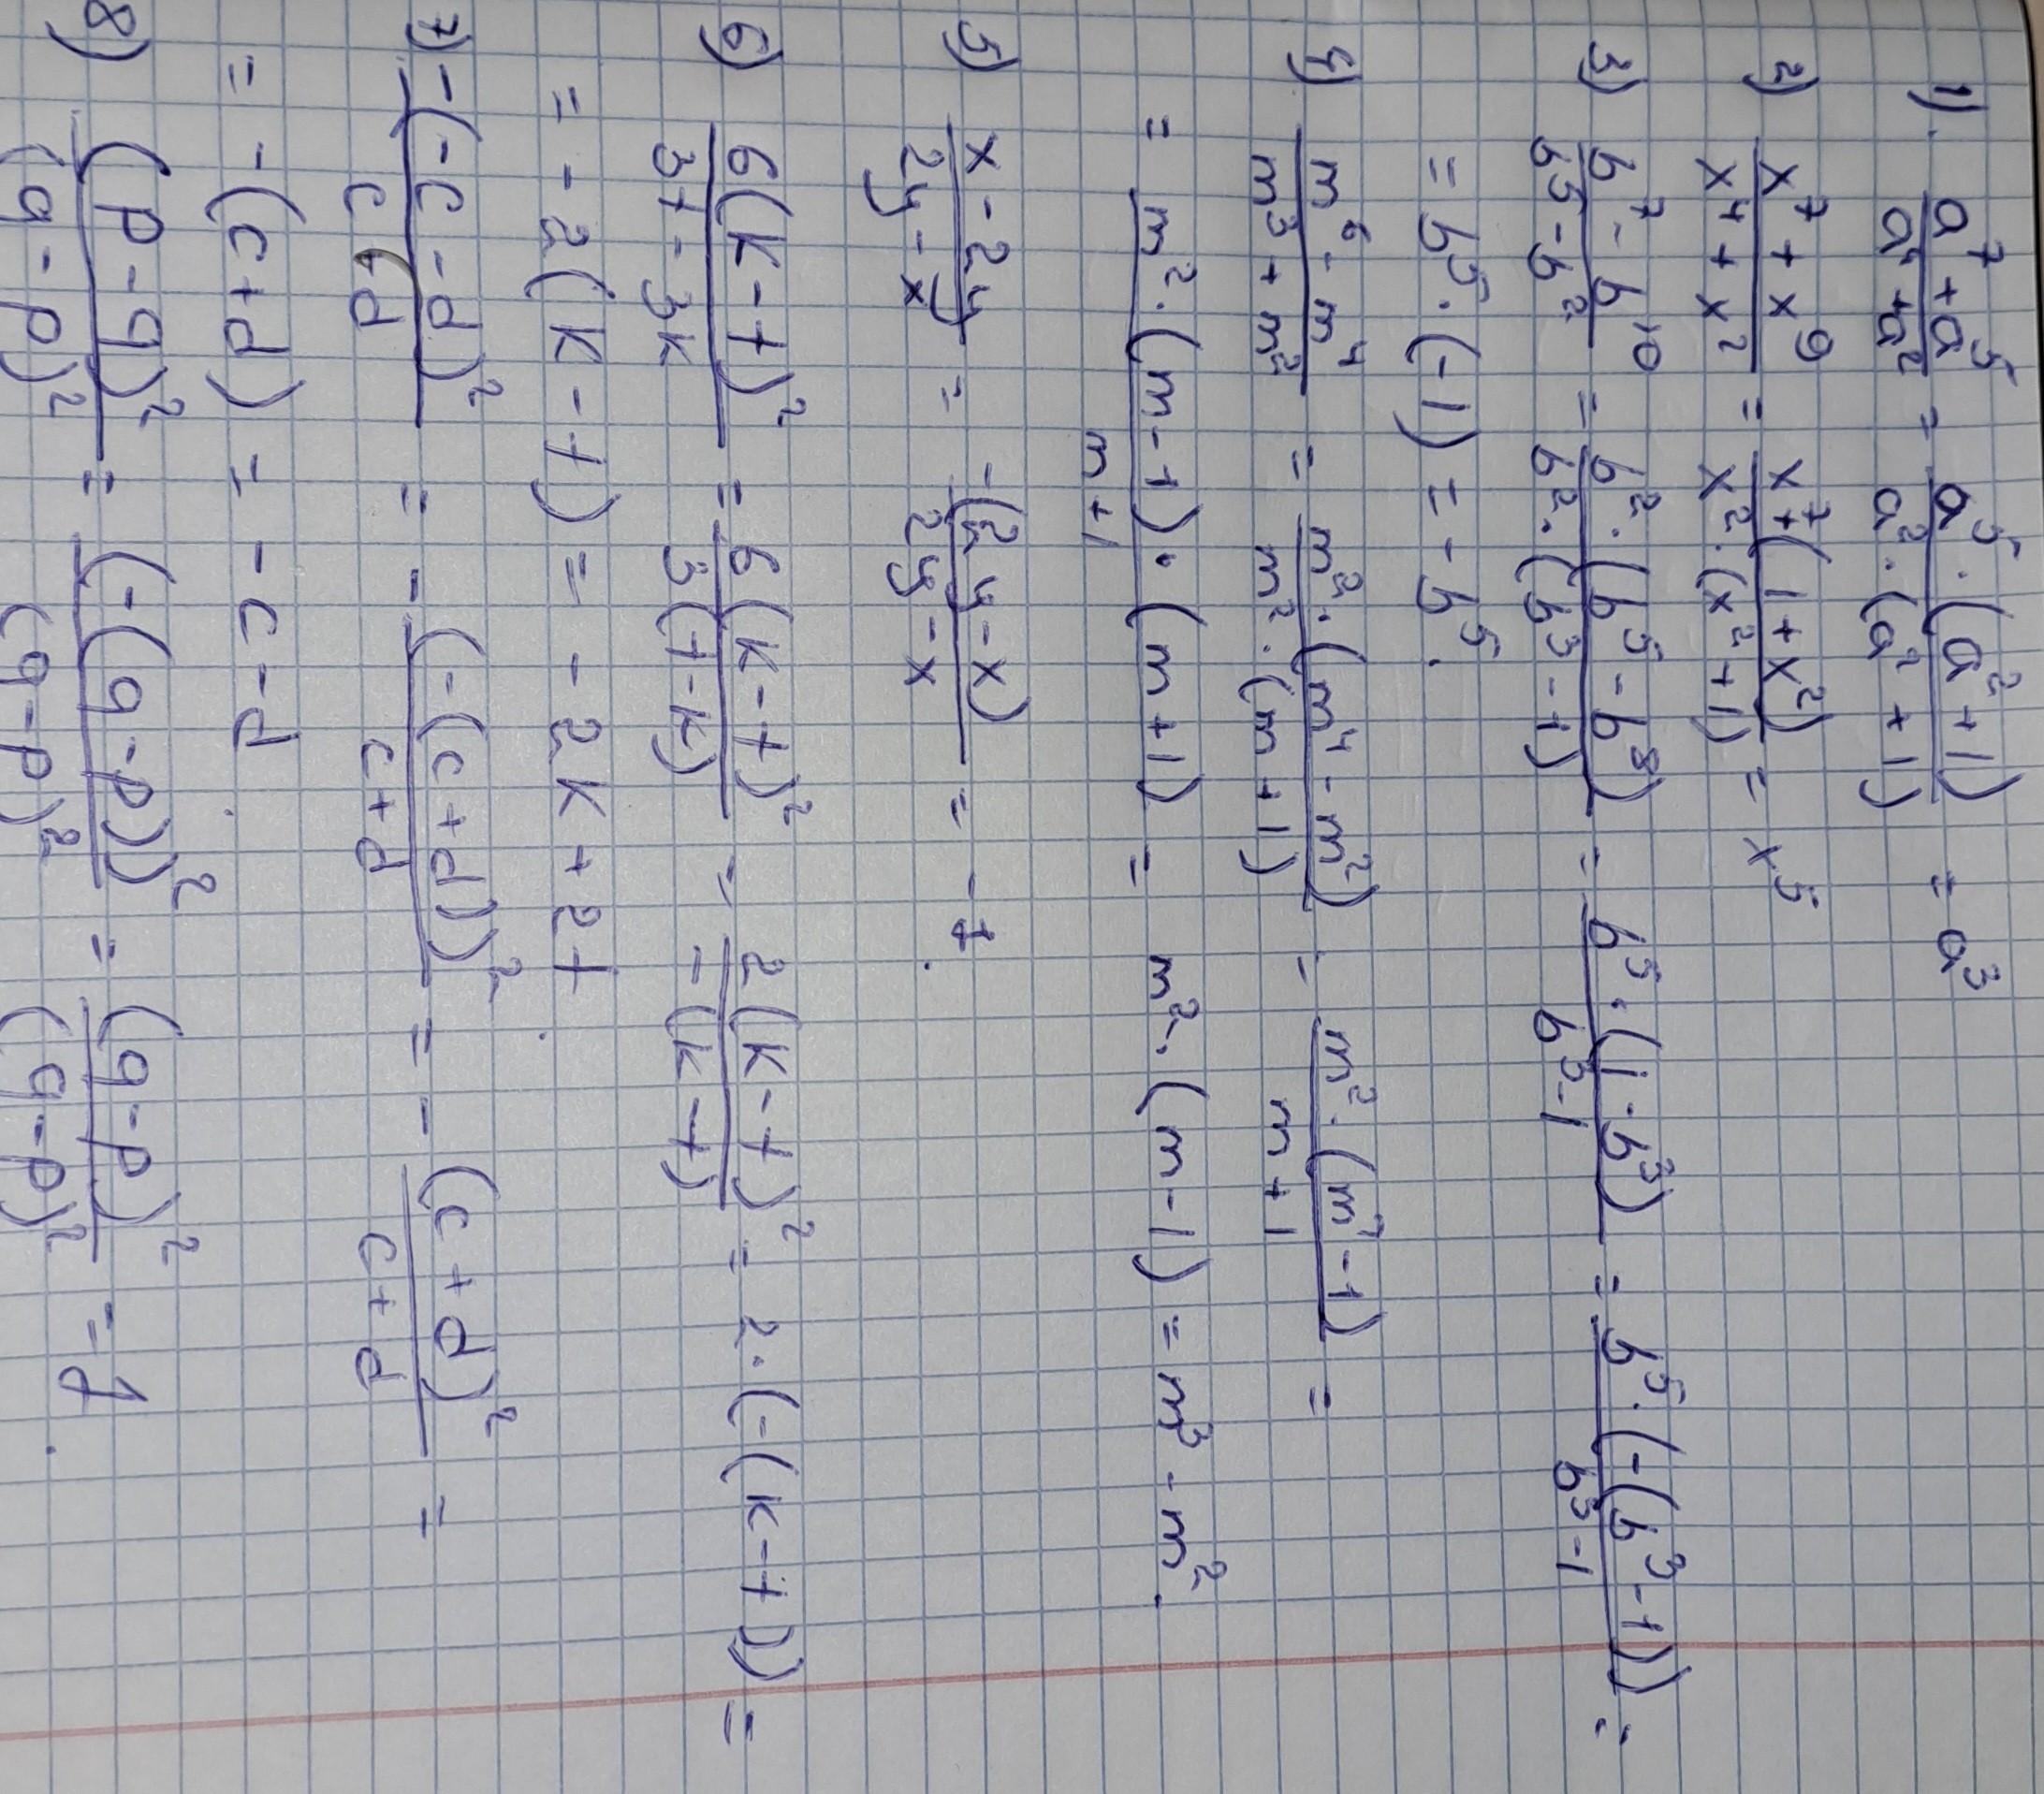 1). (a⁷+a⁵)/(a⁴+a²) = (a⁵·(a²+1))/(a²·(a²+1)) = a³
2) (x⁷+x⁹)/(x⁴+x²) = (x⁷(1+x²))/(x²·(x²+1)) = x⁵
3) (b⁷-b¹⁰)/(b⁵-b²) = (b²·(b⁵-b⁸))/(b²·(b³-1)) = (b⁵·(1-b³))/(b³-1) = (b⁵·(-(b³-1)))/(b³-1) =
= b⁵·(-1) = -b⁵.
4) (m⁶-m⁴)/(m³+m²) = (m²·(m⁴-m²))/(m²·(m+1)) = (m²·(m²-1))/(m+1) =
= (m²·(m-1)·(m+1))/(m+1) = m²·(m-1) = m³-m².
5) (x-2y)/(2y-x) = (-(2y-x))/(2y-x) = -1.
6) (6(k-t)²)/(3t-3k) = (6(k-t)²)/(3(t-k)) = (2(k-t)²)/(-(k-t)) = 2·(-(k-t)) =
= -2(k-t) = -2k+2t.
7) (-(-c-d)²)/(c+d) = -((-(c+d))²)/(c+d) = -((c+d)²)/(c+d) =
= -(c+d) = -c-d.
8) ((p-q)²)/((q-p)²) = ((-(q-p))²)/((q-p)²) = ((q-p)²)/((q-p)²) = 1.